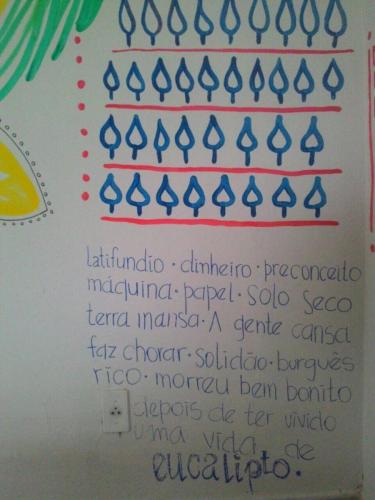 latifundio · dinheiro · preconceito
máquina · papel · solo seco
terra mansa · A gente cansa
faz chorar · solidão · burguês
rico · morreu bem bonito
depois de ter vivido
uma vida de
eucalipto.